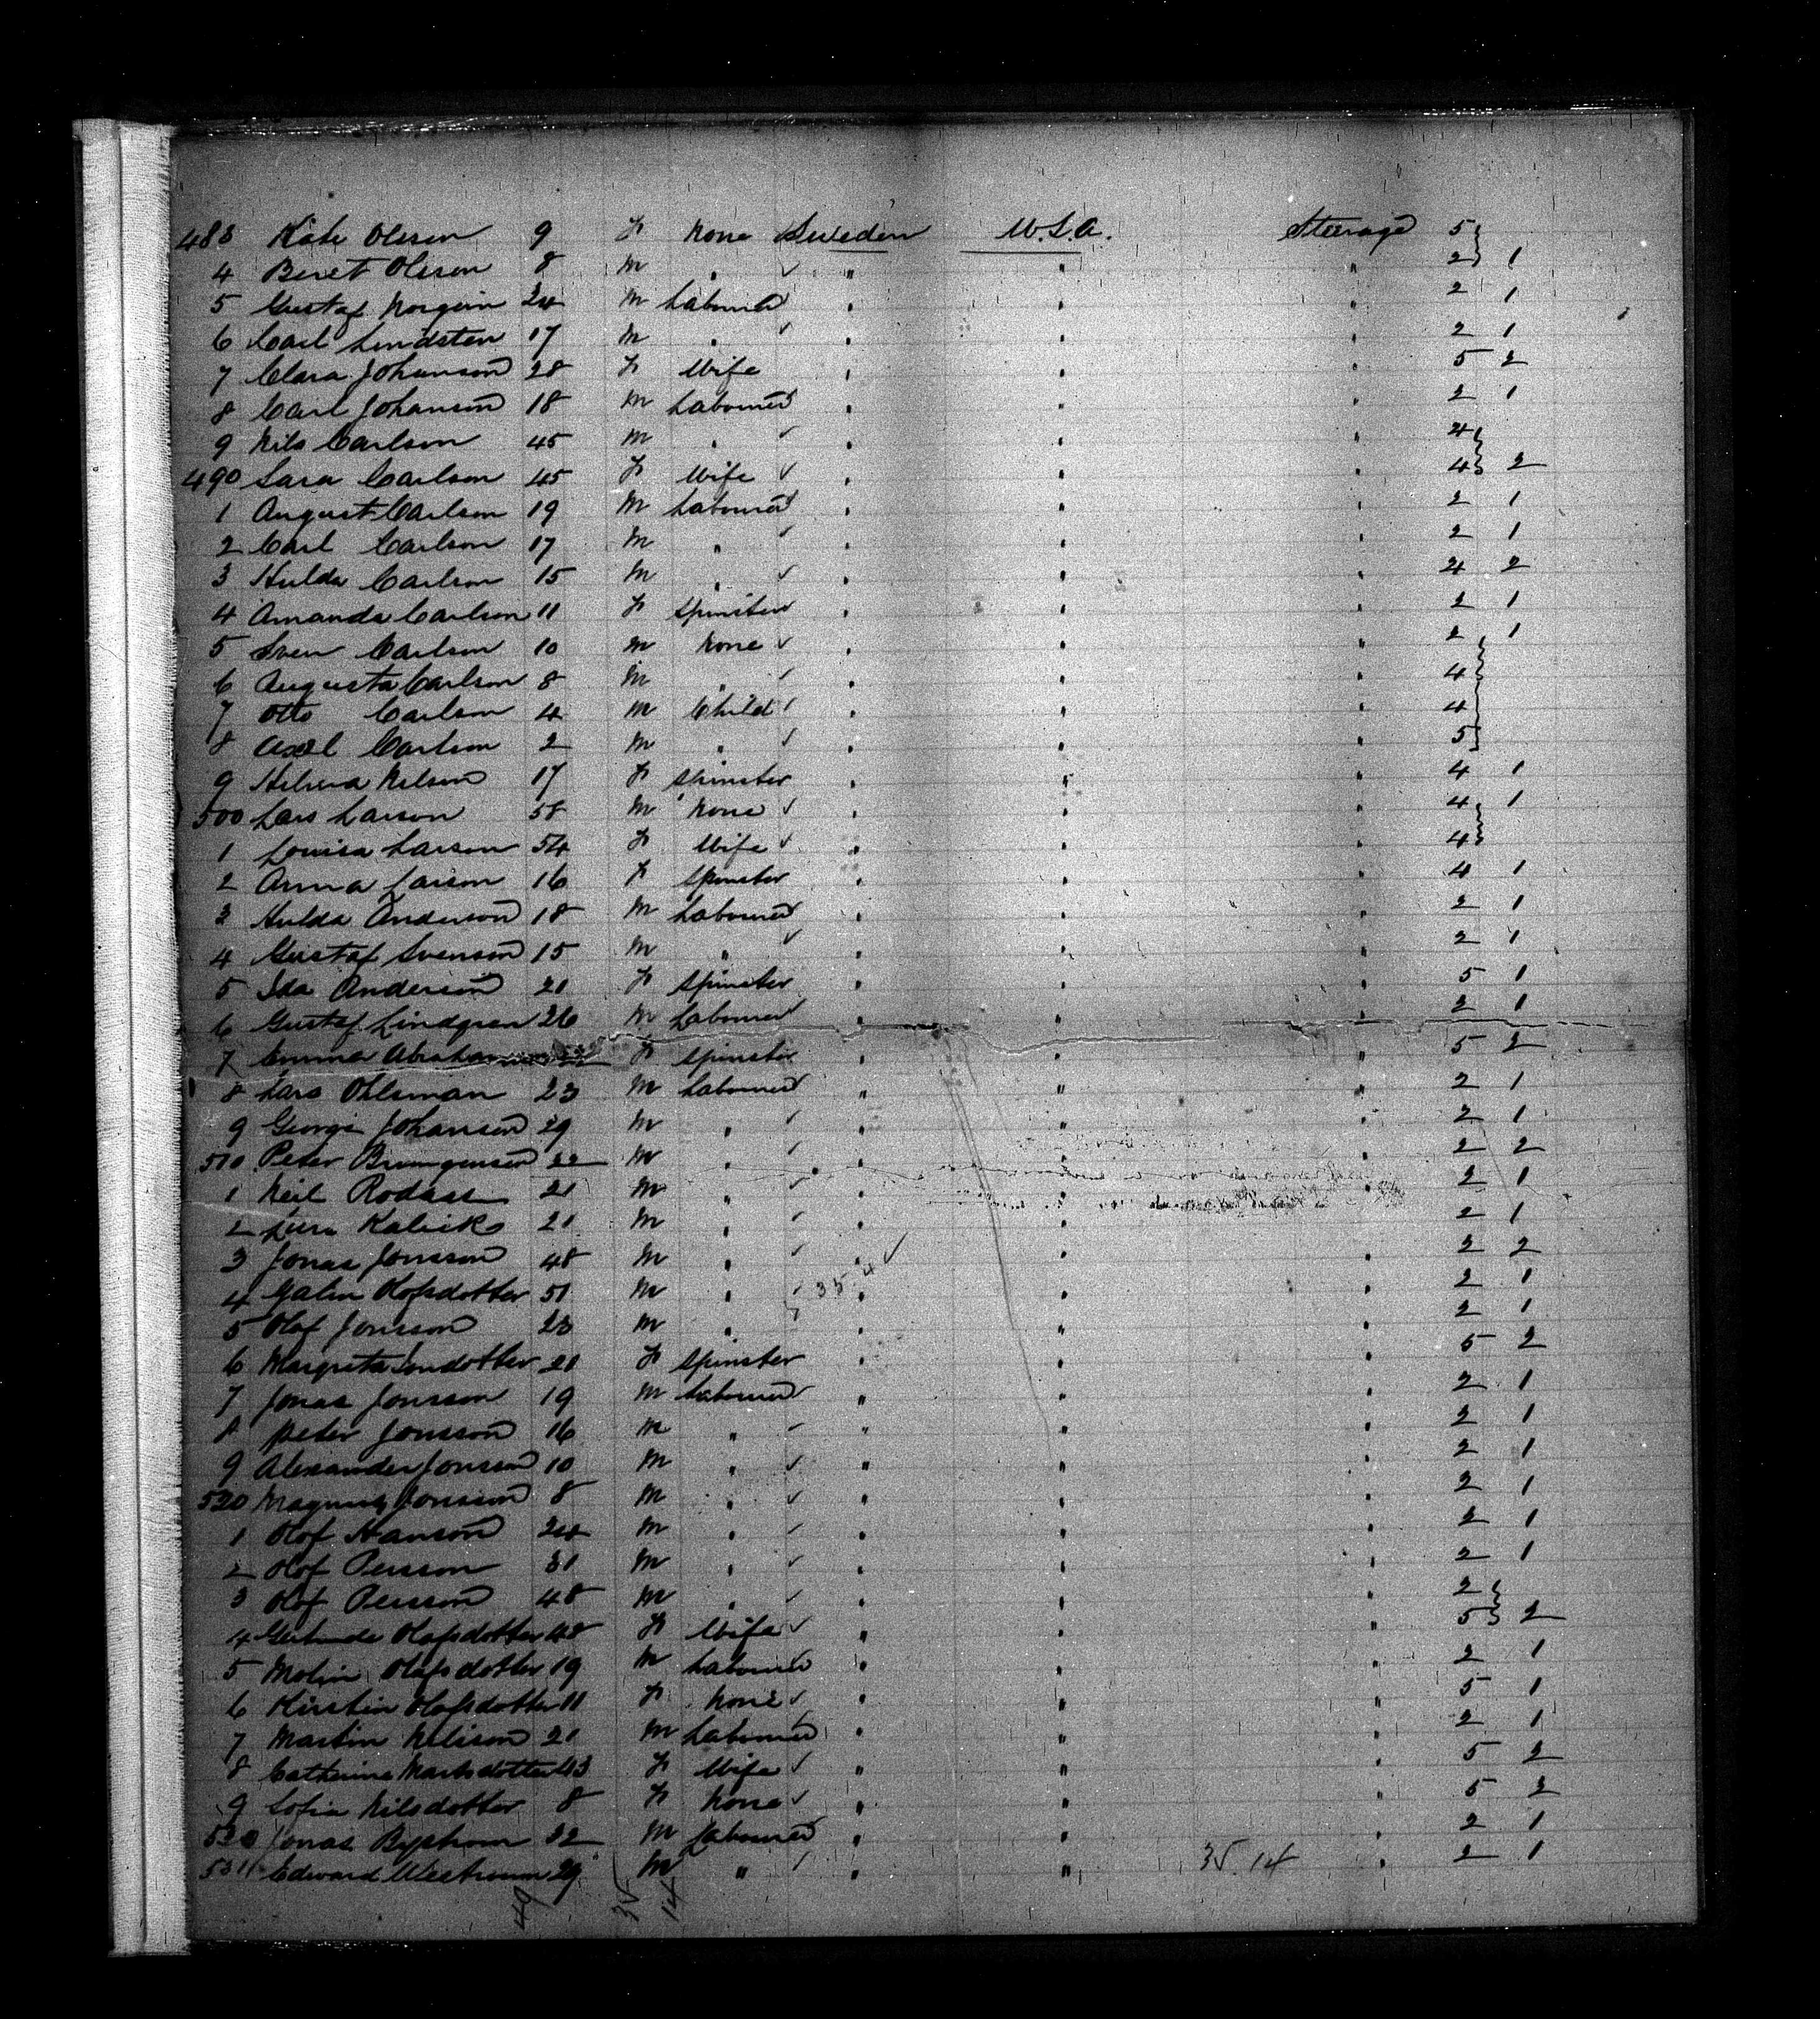 483 Kate Olsson 9 F None Sweden U.S.A. Steerage 5
4 Beret Olsson 8 M " ✓ " " " 2 1
5 Gustaf Norgvin 24 M Labourer " " " 2 1
6 Carl Lindsten 17 M " ✓ " " " 2 1
7 Clara Johanson 28 F Wife " " " 5 2
8 Carl Johanson 18 M Labourer " " " 2 1
9 Nils Carlson 45 M " ✓ " " " 4
490 Sara Carlson 45 F Wife ✓ " " " 4 2
1 August Carlson 19 M Labourer " " " 2 1
2 Carl Carlson 17 M " ✓ " " " 2 1
3 Hulda Carlson 15 M " ✓ " " " 4 2
4 Amanda Carlson 11 F Spinster " " " 2 1
5 Sven Carlson 10 M None ✓ " " " 2 1
6 Augusta Carlson 8 M " ✓ " " " 4
7 Otto Carlson 4 M Child ✓ " " " 4
8 Axel Carlson 2 M " ✓ " " " 5
9 Nelson 17 F Spinster " " " 4 1
500 Lars Larson 58 M None ✓ " " " 4 1
1 Louisa Larson 54 F Wife ✓ " " " 4
2 Anna Larson 16 F Spinster " " " 4 1
3 Hulda Anderson 18 M Labourer " " " 2 1
4 Gustaf Svenson 15 M " ✓ " " " 2 1
5 Ida Anderson 21 F Spinster " " " 5 1
6 Gustaf Lindgren 26 M Labourer " " " 2 1
7 Emma F Spinster " " " 5 2
8 Lars Ohlsman 23 M Labourer " " " 2 1
9 George Johanson 29 M " ✓ " " " 2 1
510 Peter 22 M " ✓ " " " 2 2
1 Neil Rodass 21 M " ✓ " " " 2 1
2 Kalick 21 M " ✓ " " " 2 1
3 Jonas Jonsson 48 M " ✓ " " " 2 2
4 Galin Olofsdotter 51 M " ✓ 35 4 ✓ " " " 2 1
5 Olof Jonsson 23 M " " " " 2 1
6 Margreta Jondotter 21 F Spinster " " " 5 2
7 Jonas Jonsson 19 M Labourer " " " 2 1
8 Peter Jonsson 16 M " ✓ " " " 2 1
9 Alexander Jonsson 10 M " ✓ " " " 2 1
520 Magnus Jonsson 8 M " ✓ " " " 2 1
1 Olof Hanson 24 M " ✓ " " " 2 1
2 Olof Persson 31 M " ✓ " " " 2 1
3 Olof Persson 48 M " ✓ " " " 2
4 Olofsdotter 48 F Wife ✓ " " " 5 2
5 Molin Olofsdotter 19 M Labourer " " " 2 1
6 Kirstin Olofsdotter 11 F None ✓ " " " 5 1
7 Martin Nelison 21 M Labourer " " " 2 1
8 Catherine Marksdotter 43 F Wife ✓ " " " 5 2
9 Sofia Nilsdotter 8 F None ✓ " " " 5 2
530 Jonas Bystrom 22 M Labourer " " " 2 1
531 Edward Westround 29 M " ✓ " " 35.14 " 2 1
49 35 14